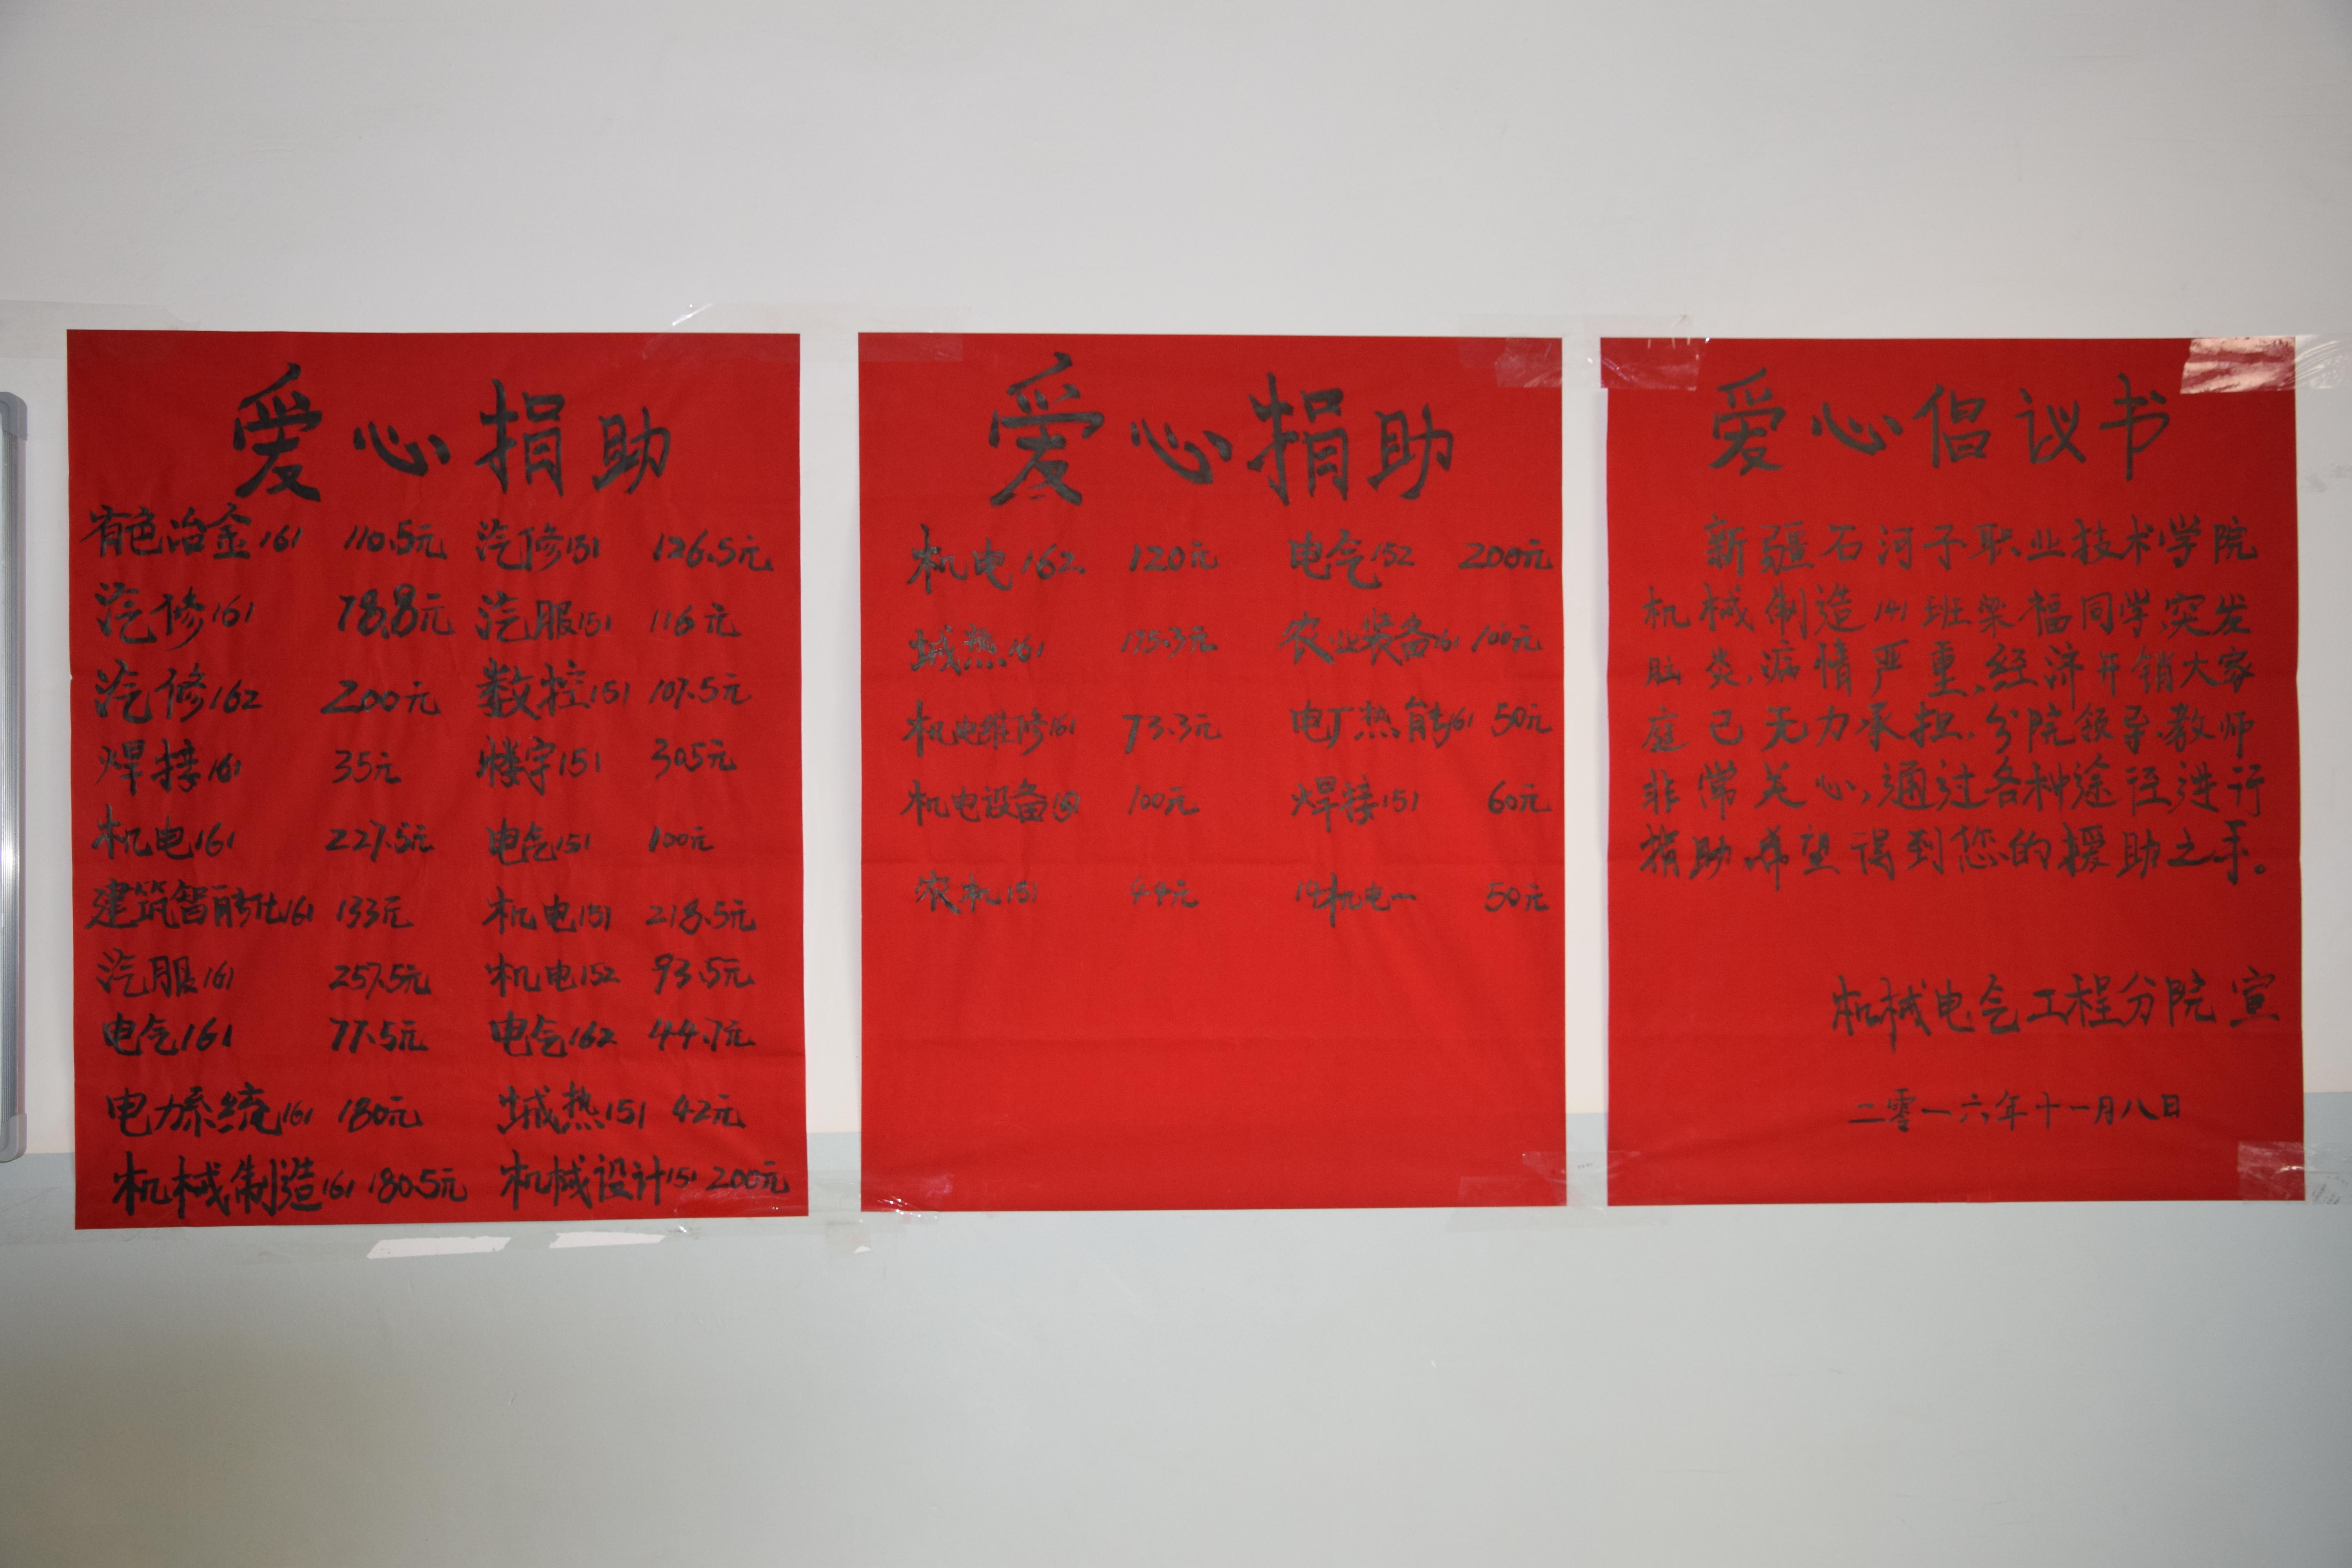 爱心捐助
有色冶金161 110.5元 汽修151 126.5元
汽修161 78.8元 汽服151 116元
汽修162 200元 数控151 107.5元
焊接161 35元 楼宇151 30.5元
机电161 227.5元 电气151 100元
建筑智能化161 133元 机电151 218.5元
汽服161 257.5元 机电152 93.5元
电气161 77.5元 电气162 44.7元
电力系统161 180元 城热151 42元
机械制造161 180.5元 机械设计151 200元
爱心捐助
机电162 120元 电气152 200元
城热161 135.3元 农业装备161 100元
机电维修161 73.3元 电厂热能161 50元
机电设备 100元 焊接151 60元
农机151 44元 机电一 50元
爱心倡议书
新疆石河子职业技术学院
机械制造141班梁福同学突发
脑炎,病情严重,经济开销大家
庭已无力承担.分院领导.教师
非常关心,通过各种途径进行
捐助.希望得到您的援助之手。
机械电气工程分院 宣
二零一六年十一月八日